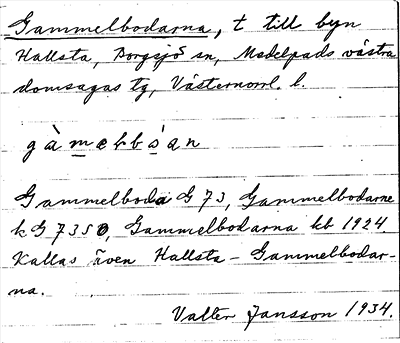 Gammelbodarna, t till byn
Hallsta, Borgsjö sn, Medelpads västra
domsagas tg, Västernorrl. l.
Gammelboda G 73, Gammelbodarne
k G 73 S O, Gammelbodarna kb 1924.
Kallas även Hallsta - Gammelbodar-
na.
Valter Jansson 1934.